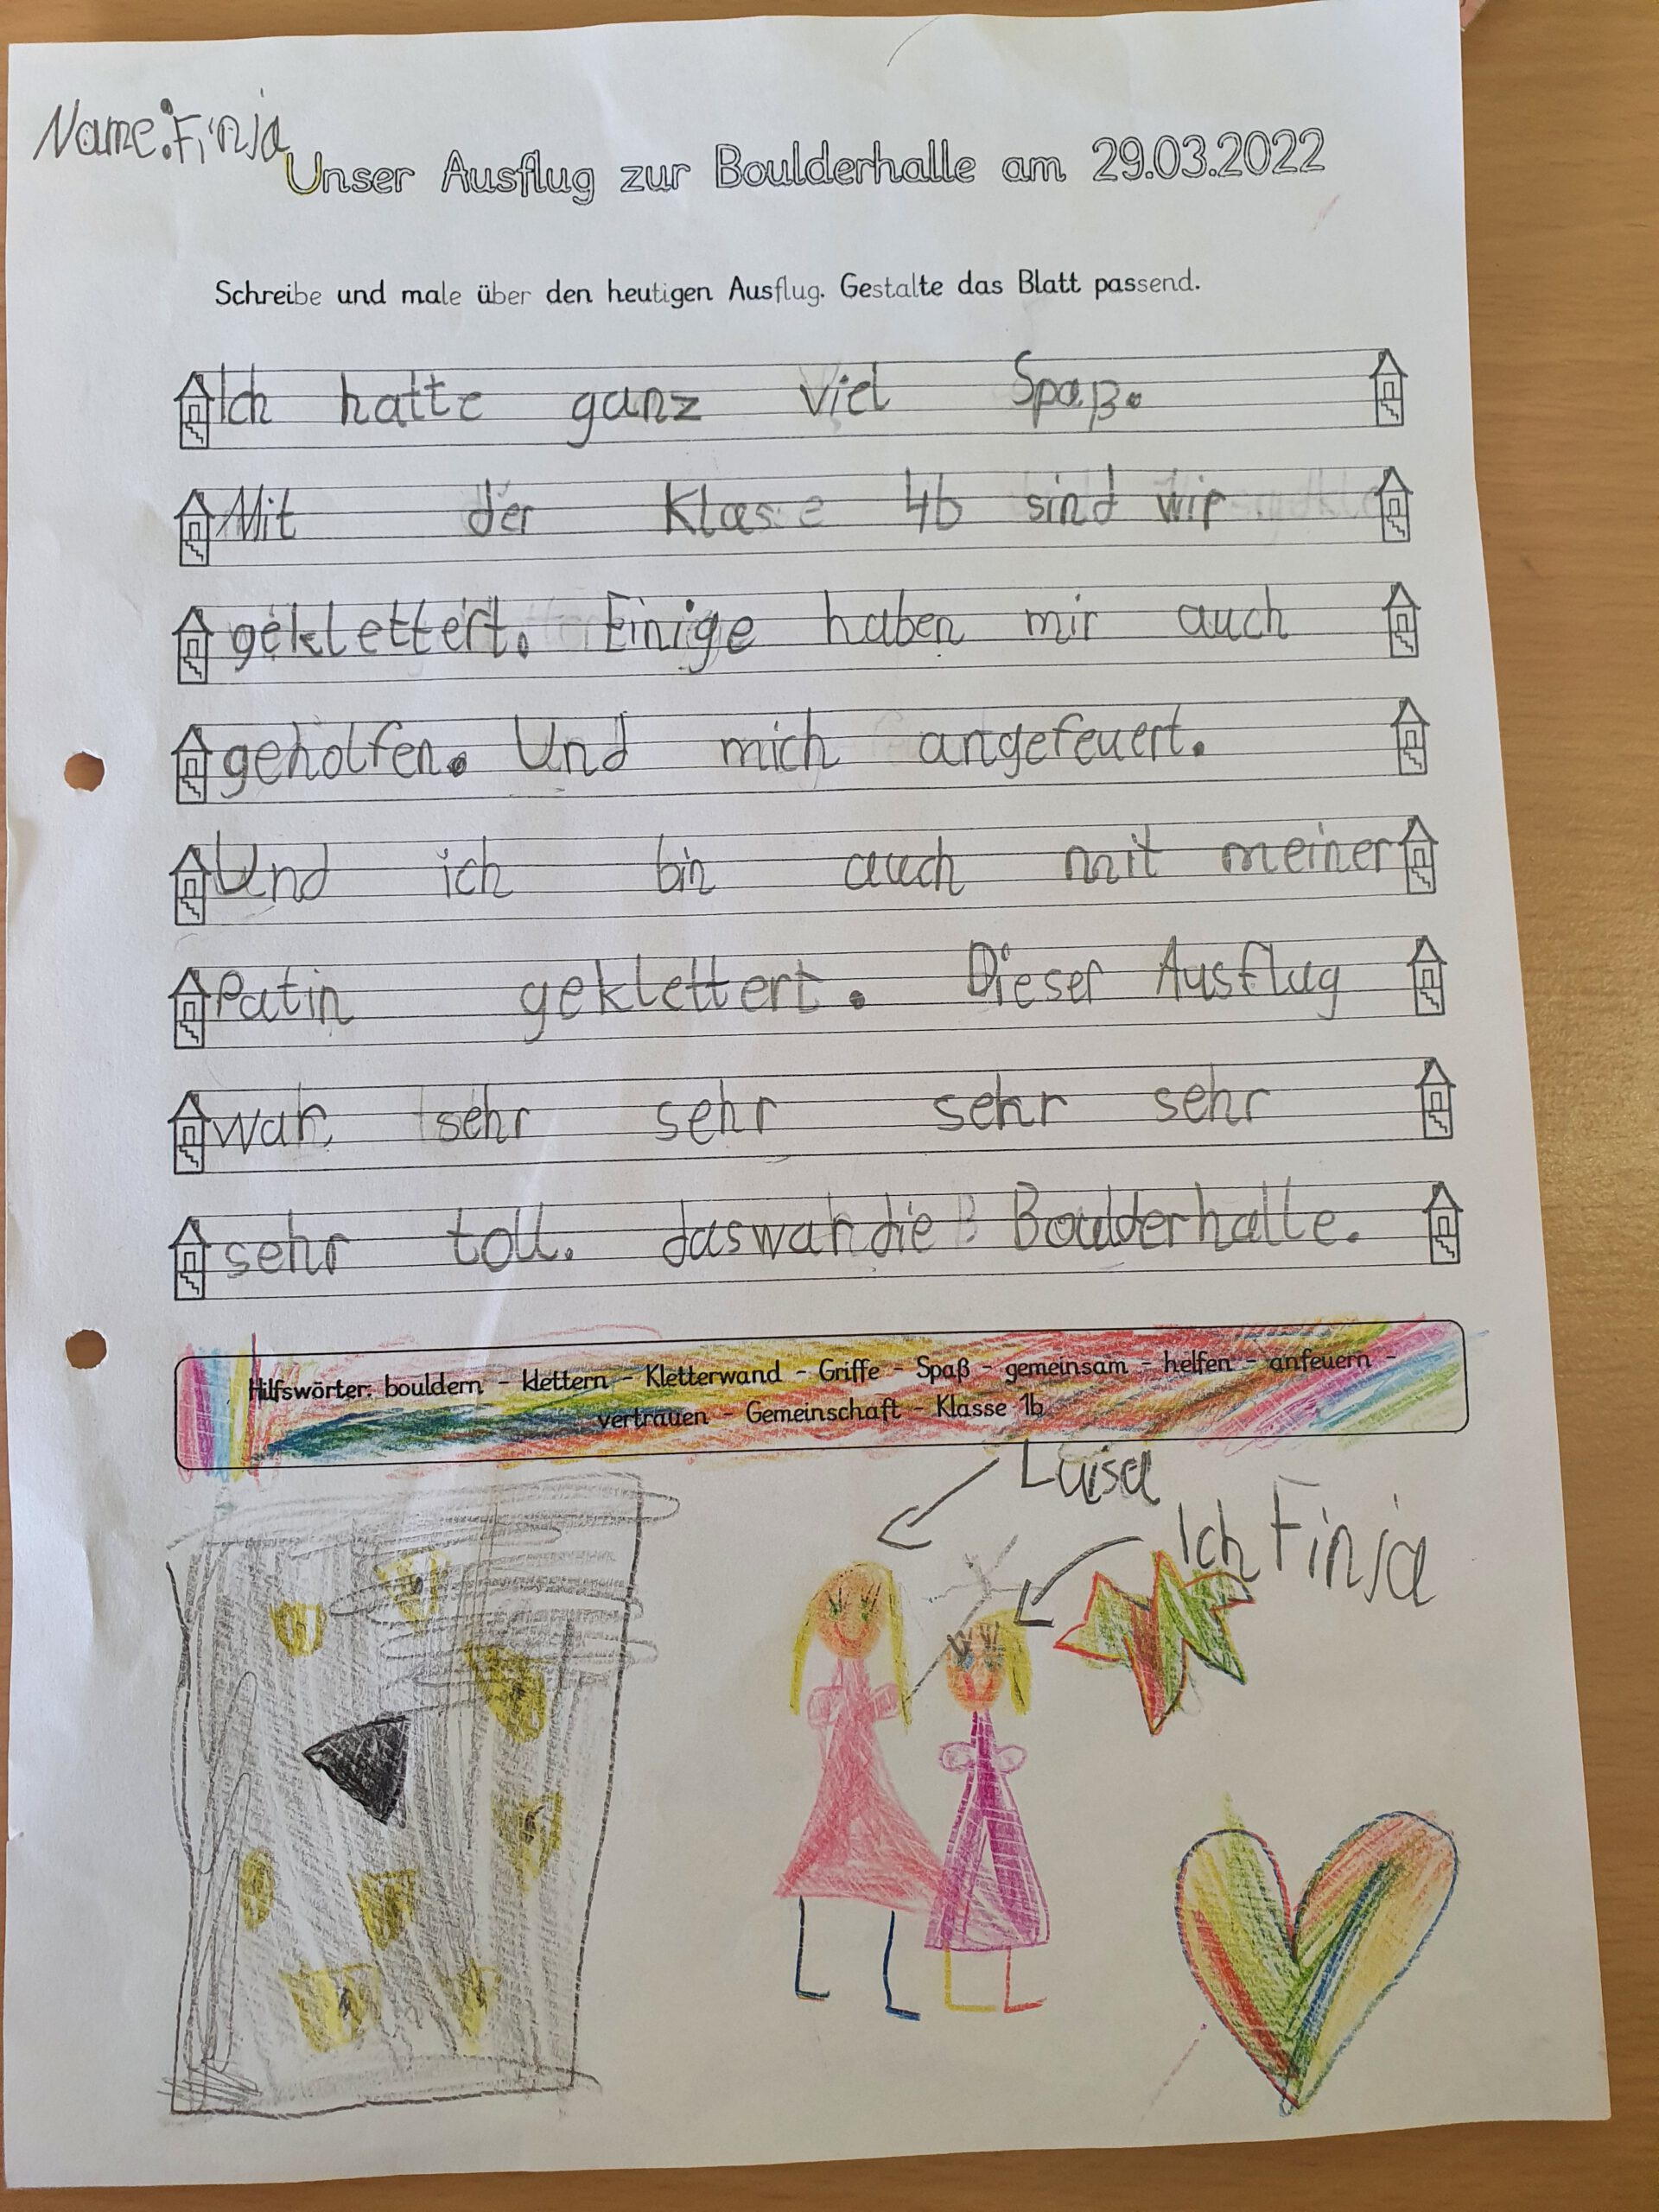 Name: Finja
Unser Ausflug zur Boulderhalle am 29.03.2022
Schreibe und male über den heutigen Ausflug. Gestalte das Blatt passend.
Ich hatte ganz viel Spaß.
Mit der Klasse 4b sind wir
geklettert. Einige haben mir auch
geholfen. Und mich angefeuert.
Und ich bin auch mit meiner
Patin geklettert. Dieser Ausflug
war sehr sehr sehr sehr
sehr toll. das war die Boulderhalle.
Hilfswörter: bouldern - klettern - Kletterwand - Griffe - Spaß - gemeinsam - helfen - anfeuern -
vertrauen - Gemeinschaft - Klasse 1b
Luisa
Ich Finja